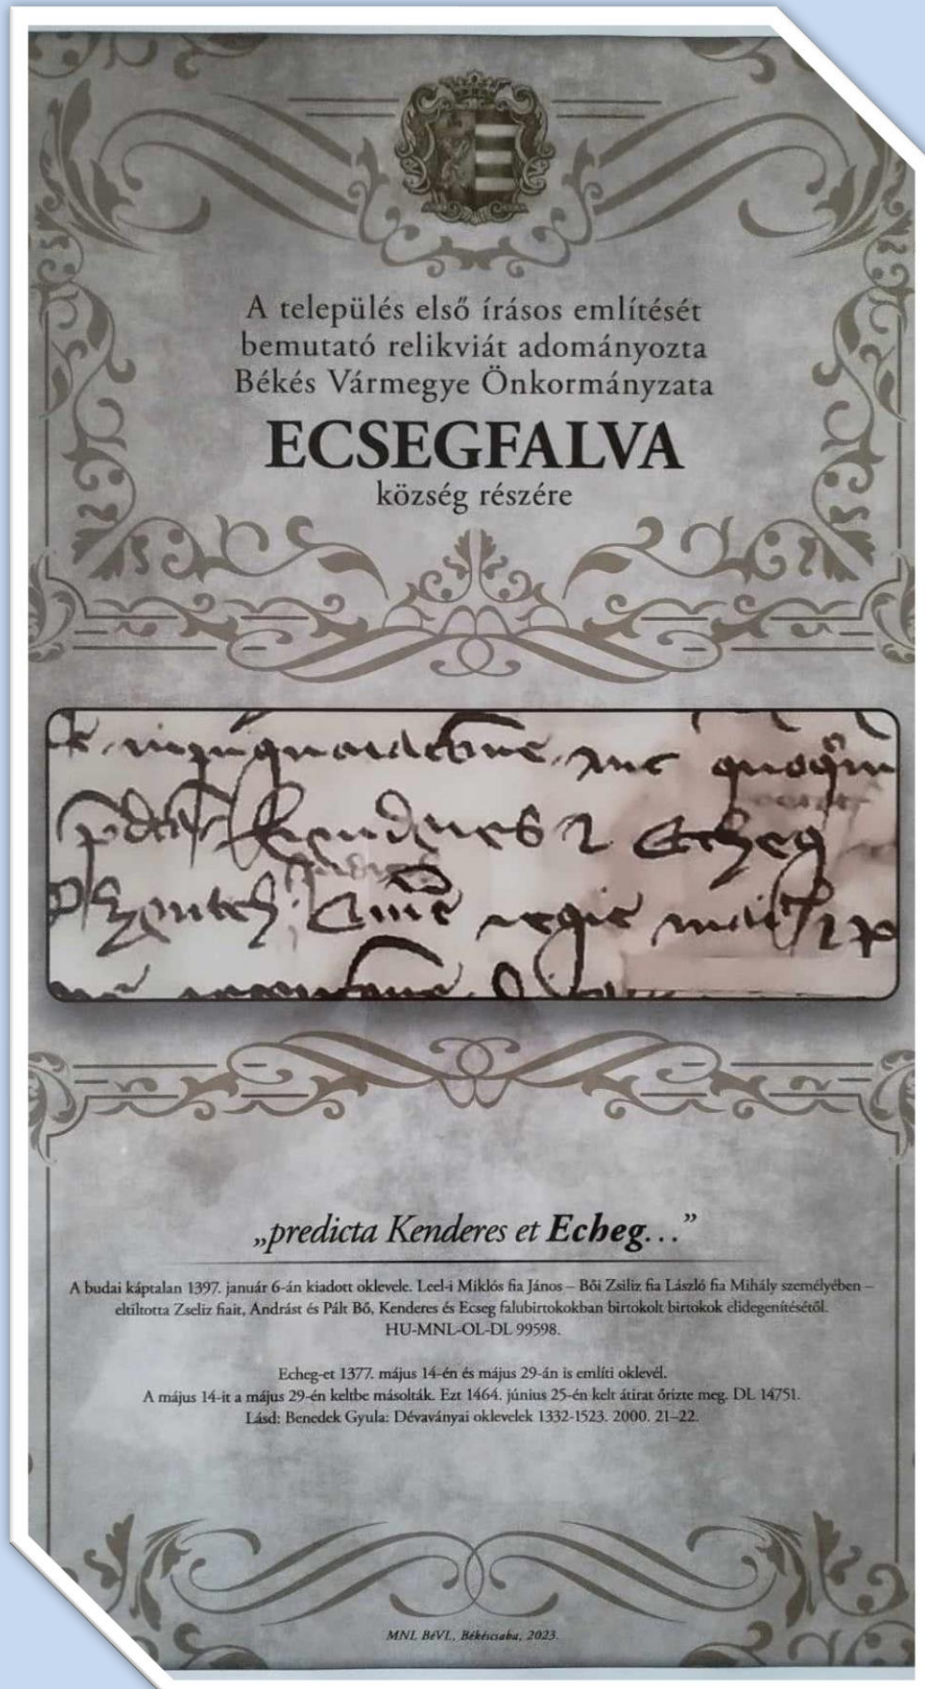 A település első írásos említését
bemutató relikviát adományozta
Békés Vármegye Önkormányzata
ECSEGFALVA
község részére
Kenderes Echeg
regie
„predicta Kenderes et Echeg...”
A budai káptalan 1397. január 6-án kiadott oklevele. Leel-i Miklós fia János – Bői Zsiliz fia László fia Mihály személyében –
eltiltotta Zseliz fiait, Andrást és Pált Bő, Kenderes és Ecseg falubirtokokban birtokolt birtokok elidegenítésétől.
HU-MNL-OL-DL 99598.
Echeg-et 1377. május 14-én és május 29-án is említi oklevél.
A május 14-it a május 29-én keltbe másolták. Ezt 1464. június 25-én kelt átirat őrizte meg. DL 14751.
Lásd: Benedek Gyula: Dévaványai oklevelek 1332-1523. 2000. 21–22.
MNL BéVL, Békéscsaba, 2023.